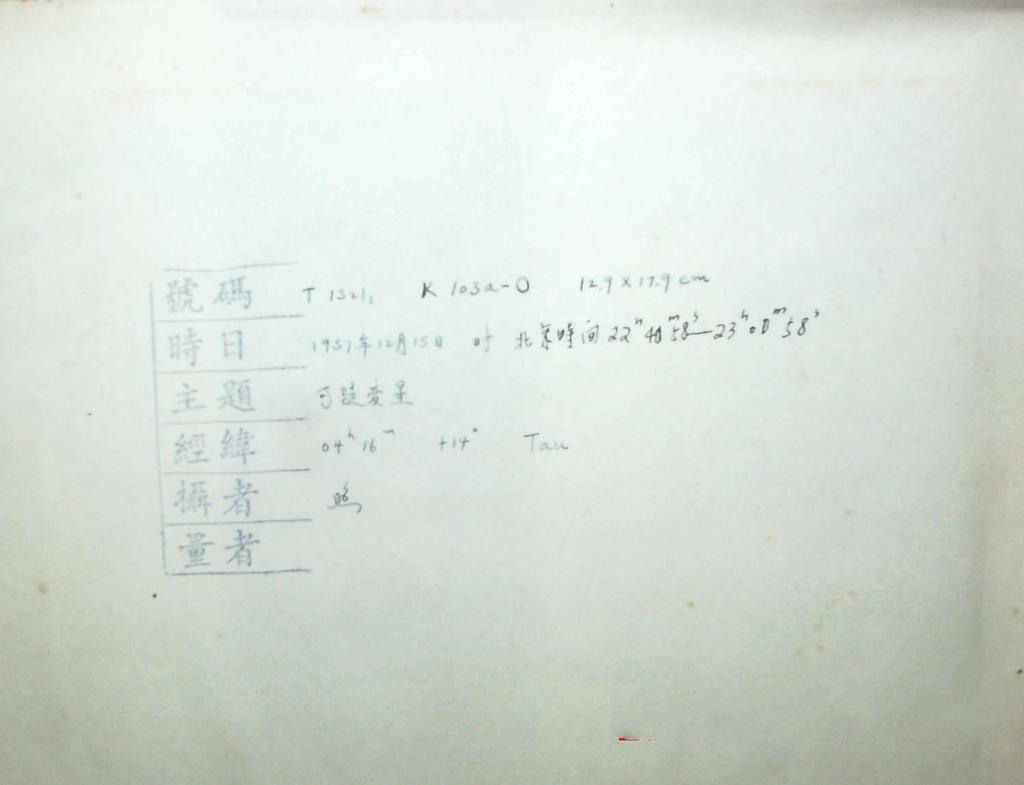 號碼 T 1321, K 103a-O 12.9 × 17.9 cm
時日 1957年12月15日 时 北京時间 22ʰ 40ᵐ 58ˢ—23ʰ 00ᵐ 58ˢ
主題 可疑变星
經緯 04ʰ 16ᵐ +14° Tau
攝者
量者